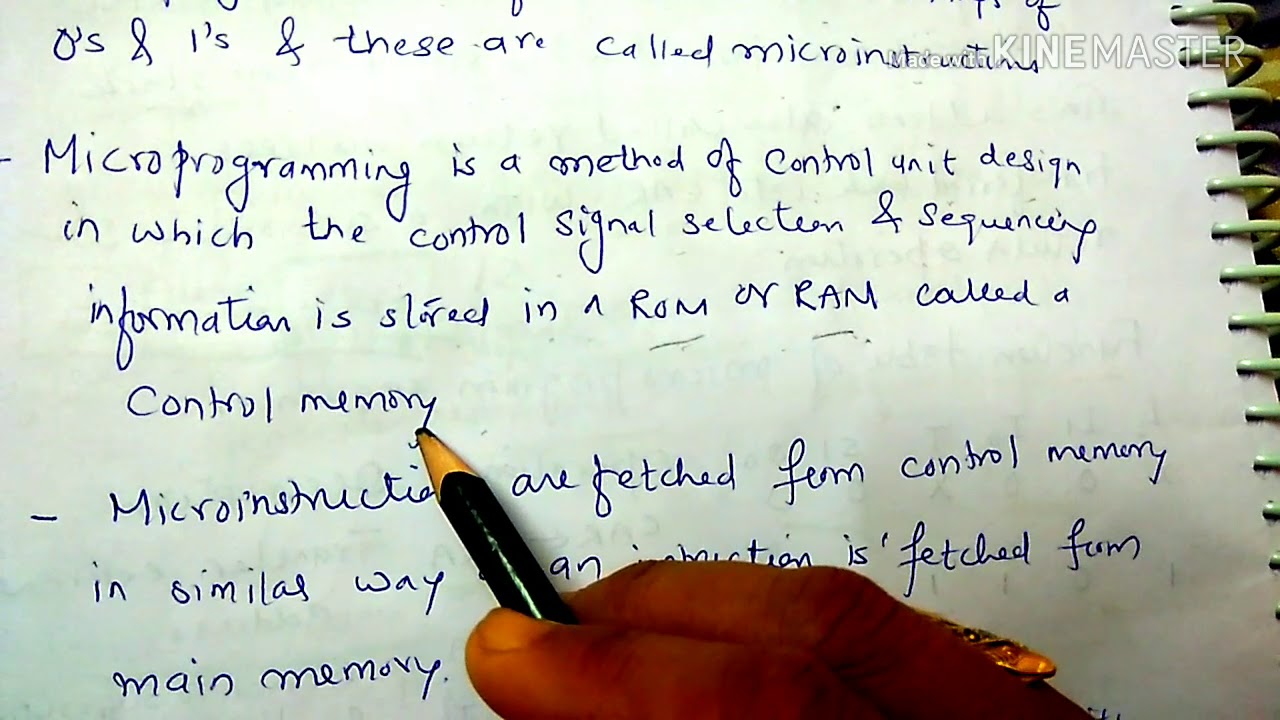 of
0's & 1's & these are called microinstructions
Made with KINEMASTER
- Microprogramming is a method of control unit design
in which the control signal selection & sequencing
information is stored in a ROM or RAM called a
Control memory
- Microinstruction are fetched from control memory
in similar way an instruction is fetched from
main memory.